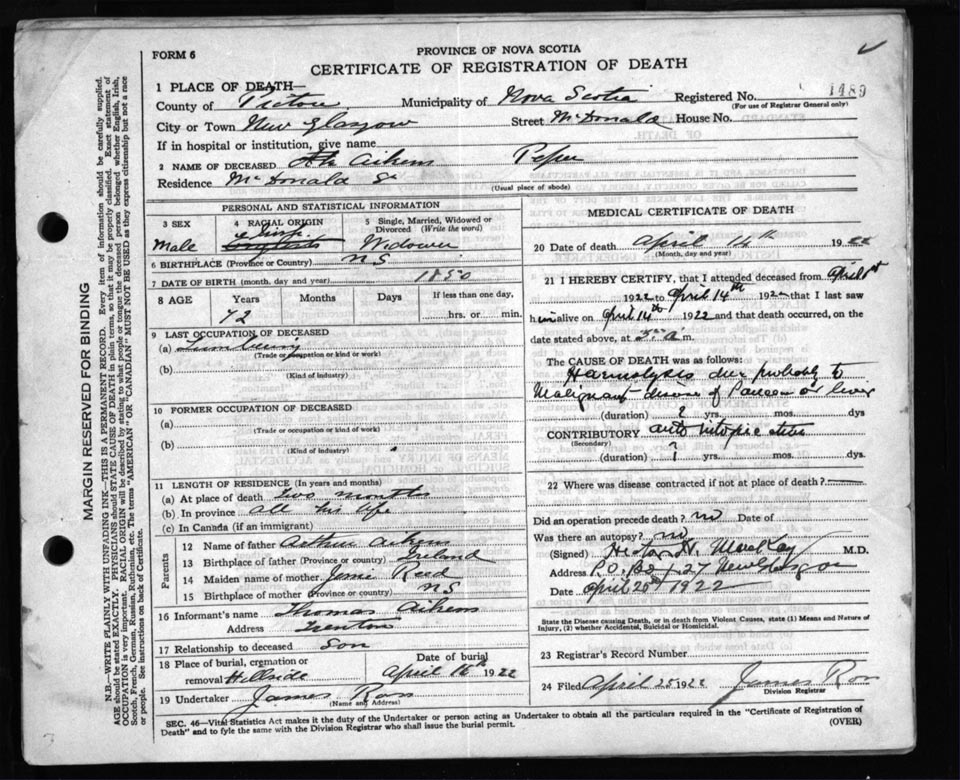 FORM 6
PROVINCE OF NOVA SCOTIA
CERTIFICATE OF REGISTRATION OF DEATH
1 PLACE OF DEATH—
County of Pictou Municipality of Nova Scotia Registered No. 1489
(For use of Registrar General only)
City or Town New Glasgow Street McDonald House No.
If in hospital or institution, give name
2 NAME OF DECEASED Aikens
Residence McDonald St
(Usual place of abode)
PERSONAL AND STATISTICAL INFORMATION
3 SEX
Male
4 RACIAL ORIGIN
5 Single, Married, Widowed or Divorced (Write the word)
Widower
6 BIRTHPLACE (Province or Country) NS
7 DATE OF BIRTH (month, day and year) 1850
8 AGE Years Months Days If less than one day,
72 hrs. or min.
9 LAST OCCUPATION OF DECEASED
(a) Lumbering
(Trade or occupation or kind or work)
(b)
(Kind of industry)
10 FORMER OCCUPATION OF DECEASED
(a)
(Trade or occupation or kind of work)
(b)
(Kind of industry)
11 LENGTH OF RESIDENCE (In years and months)
(a) At place of death two months
(b) In province all his life
(c) In Canada (if an immigrant)
Parents
12 Name of father Arthur Aikens
13 Birthplace of father (Province or country) Ireland
14 Maiden name of mother Reid
15 Birthplace of mother (Province or country) NS
16 Informant's name Thomas Aikens
Address Trenton
17 Relationship to deceased Son
18 Place of burial, cremation or removal Hillside
Date of burial
April 16th 1922
19 Undertaker James Ross
(Name and Address)
MEDICAL CERTIFICATE OF DEATH
20 Date of death April 14th 1922
(Month, day and year)
21 I HEREBY CERTIFY, that I attended deceased from April 1st
1922 to April 14th 1922 that I last saw
him alive on April 14th 1922 and that death occurred, on the
date stated above, at m.
The CAUSE OF DEATH was as follows:
Haemolysis due probably to
Malignant disease of Pancreas or liver
(duration) ? yrs. mos. dys
CONTRIBUTORY
(Secondary)
(duration) ? yrs. mos. dys.
22 Where was disease contracted if not at place of death?
Did an operation precede death? no Date of
Was there an autopsy? no
(Signed) Hector H. MacKay M.D.
Address P.O. Box 27 New Glasgow
Date April 25th 1922
State the Disease causing Death, or in death from Violent Causes, state (1) Means and Nature of
Injury, (2) whether Accidental, Suicidal or Homicidal.
23 Registrar's Record Number
24 Filed April 25 1922 James Ross
Division Registrar
SEC. 46—Vital Statistics Act makes it the duty of the Undertaker or person acting as Undertaker to obtain all the particulars required in the "Certificate of Registration of
Death" and to fyle the same with the Division Registrar who shall issue the burial permit.
(OVER)
MARGIN RESERVED FOR BINDING
N.B.—WRITE PLAINLY WITH UNFADING INK—THIS IS A PERMANENT RECORD. Every item of information should be carefully supplied.
AGE should be stated EXACTLY. PHYSICIANS should STATE CAUSE OF DEATH in plain terms, so that it may be properly classified. Exact statement of
OCCUPATION is very important. RACIAL ORIGIN will be described by stating to what people or tongue the deceased person belonged whether English, Irish,
Scotch, French, German, Russian, Ruthenian, etc. The terms "AMERICAN" OR "CANADIAN" MUST NOT BE USED as they express citizenship but not a race
or people. See instructions on back of Certificate.